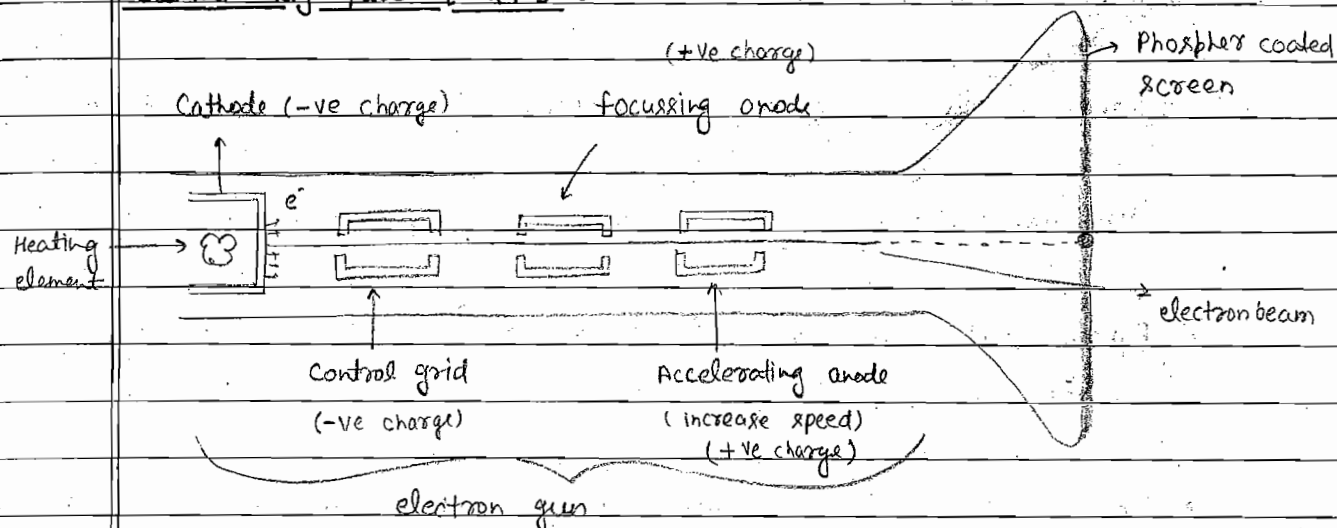 (+ve charge)
Phospher coated
screen
Cathode (-ve charge)
focussing anode
e⁻
Heating
element
electron beam
Control grid
(-ve charge)
Accelerating anode
(increase speed)
(+ve charge)
electron gun